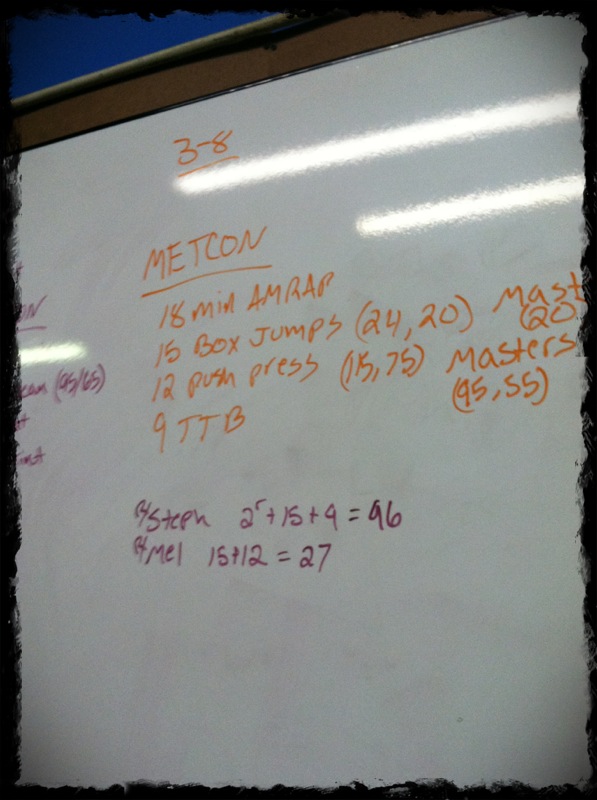 3-8
METCON
18 min AMRAP
15 Box Jumps (24, 20) Mast
(20)
12 push press (115, 75) Masters
(95, 55)
9 TTB
Steph 2r+15+9 = 96
Mel 15+12 = 27
(95/65)